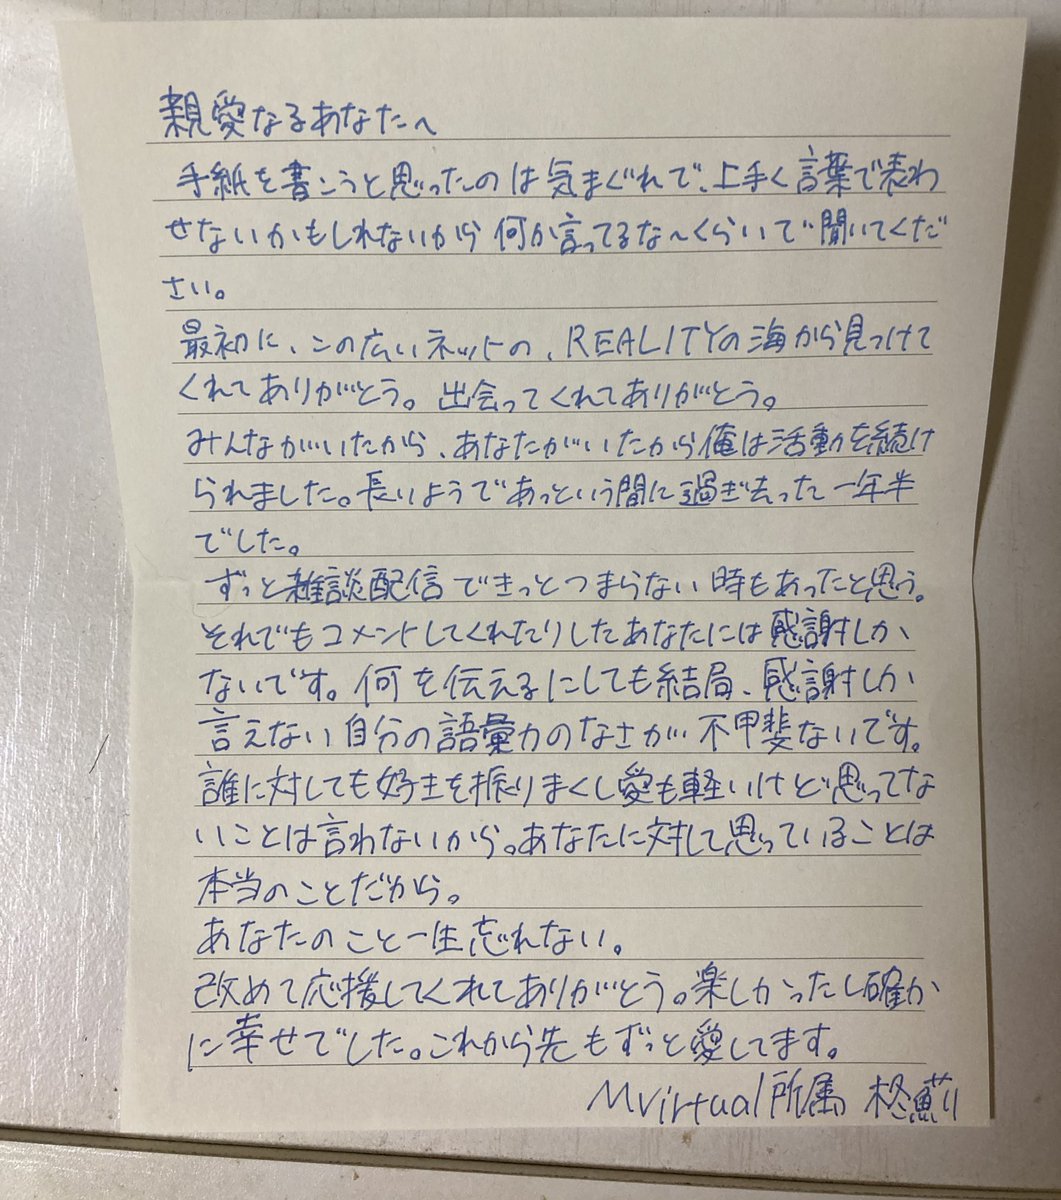 親愛なるあなたへ
手紙を書こうと思ったのは気まぐれで、上手く言葉で表わ
せないかもしれないから何か言ってるな〜くらいで聞いてくだ
さい。
最初に、この広いネットの、REALITYの海から見つけて
くれてありがとう。出会ってくれてありがとう。
みんながいたから、あなたがいたから俺は活動を続け
られました。長いようであっという間に過ぎ去った一年半
でした。
ずっと雑談配信できっとつまらない時もあったと思う。
それでもコメントしてくれたりしたあなたには感謝しか
ないです。何を伝えるにしても結局、感謝しか
言えない自分の語彙力のなさが不甲斐ないです。
誰に対しても好きを振りまくし愛も軽いけど思ってな
いことは言わないから。あなたに対して思っていることは
本当のことだから。
あなたのこと一生忘れない。
改めて応援してくれてありがとう。楽しかったし確か
に幸せでした。これから先もずっと愛してます。
Mvirtual所属 柊